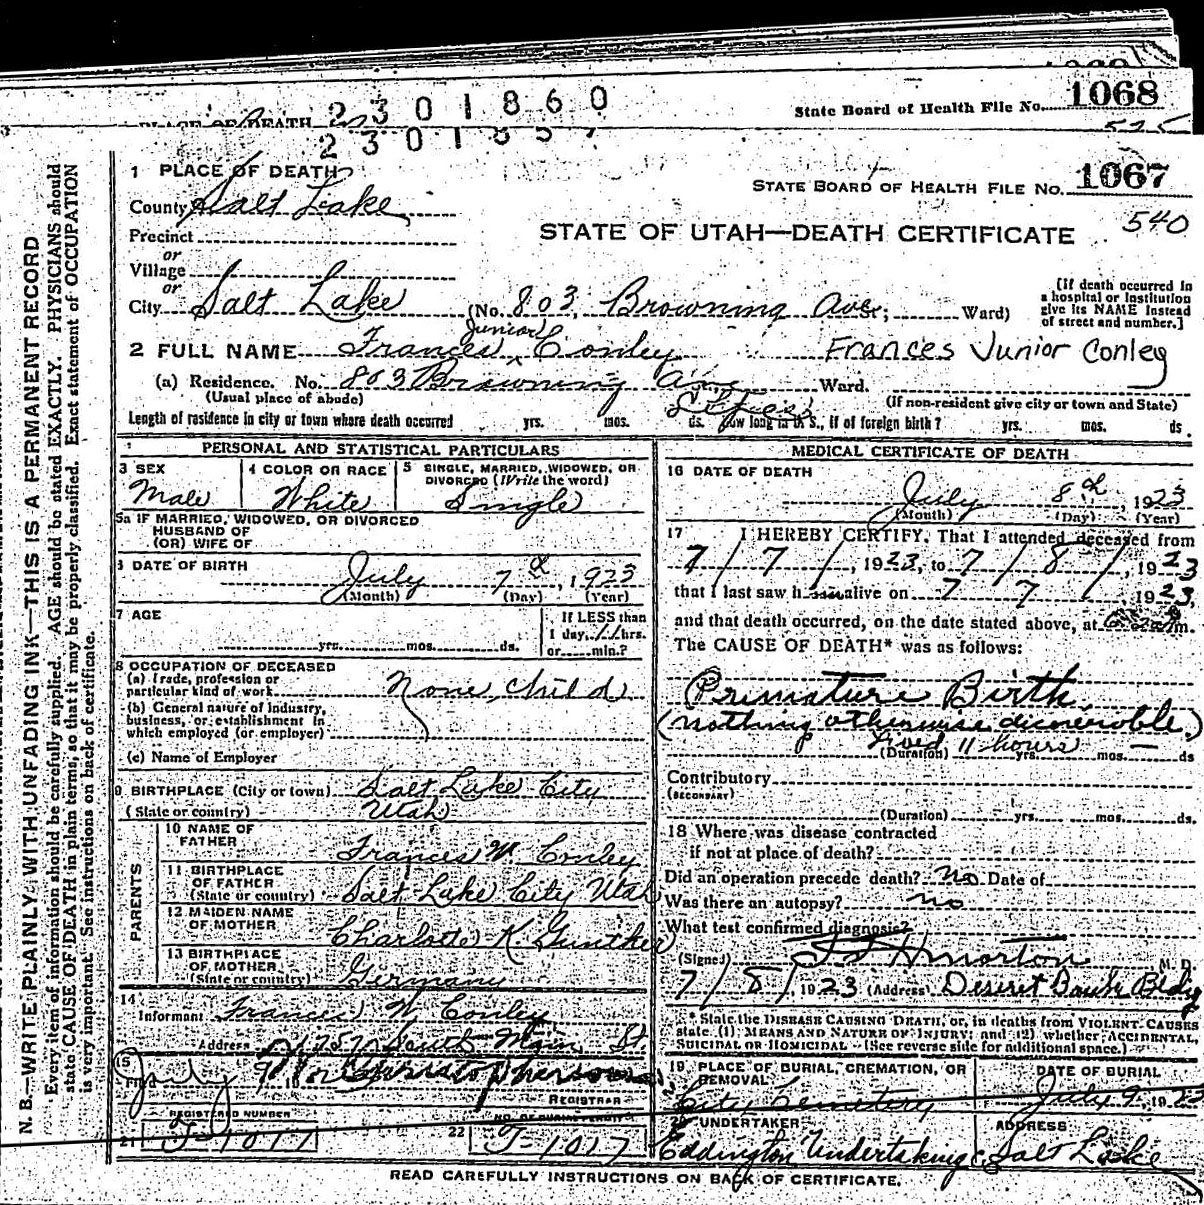 2301860
State Board of Health File No. 1068
PLACE OF DEATH
525
2301857
1 PLACE OF DEATH
STATE BOARD OF HEALTH FILE NO. 1067
County Salt Lake
540
STATE OF UTAH—DEATH CERTIFICATE
Precinct
or
Village
or
City Salt Lake (No. 803, Browning Ave; Ward)
[If death occurred in a hospital or institution give its NAME instead of street and number.]
Junior
2 FULL NAME Frances Conley Frances Junior Conley
(a) Residence. No. 803 Browning Ave Ward.
(Usual place of abode) (If non-resident give city or town and State)
Length of residence in city or town where death occurred yrs. mos. ds. How long in U S., if of foreign birth? yrs. mos. ds.
PERSONAL AND STATISTICAL PARTICULARS
3 SEX Male
4 COLOR OR RACE White
5 SINGLE, MARRIED, WIDOWED, OR DIVORCED (Write the word) Single
5a IF MARRIED, WIDOWED, OR DIVORCED
HUSBAND OF
(OR) WIFE OF
6 DATE OF BIRTH
July 7th, 1923
(Month) (Day) (Year)
7 AGE
yrs. mos. ds.
If LESS than
1 day, 11 hrs.
or min.?
8 OCCUPATION OF DECEASED
(a) Trade, profession or particular kind of work None, child
(b) General nature of industry,
business, or establishment in
which employed (or employer)
(c) Name of Employer
9 BIRTHPLACE (City or town) Salt Lake City
(State or country) Utah
PARENTS
10 NAME OF FATHER Frances W. Conley
11 BIRTHPLACE OF FATHER (State or country) Salt Lake City Utah
12 MAIDEN NAME OF MOTHER Charlotte K. Gunther
13 BIRTHPLACE OF MOTHER (State or country) Germany
14
Informant Frances W Conley
Address South Main St.
15
Filed July 9
REGISTRAR
REGISTERED NUMBER
21 J-1017
22 J-1017
MEDICAL CERTIFICATE OF DEATH
16 DATE OF DEATH
July 8th, 1923
(Month) (Day) (Year)
17 I HEREBY CERTIFY, That I attended deceased from
7/7/, 1923, to 7/8/, 1923
that I last saw h im alive on 7 7 1923.
and that death occurred, on the date stated above, at m.
The CAUSE OF DEATH* was as follows:
Premature Birth
(nothing otherwise discoverable.)
Lived 11 hours
(Duration) yrs. mos. ds
Contributory
(SECONDARY)
(Duration) yrs. mos. ds.
18 Where was disease contracted
if not at place of death?
Did an operation precede death? No Date of
Was there an autopsy? no
What test confirmed diagnosis?
(Signed) Morton M. D.
7/8/, 1923 (Address) Deseret Bank Bldg
* State the DISEASE CAUSING DEATH, or, in deaths from VIOLENT CAUSES
state (1) MEANS AND NATURE OF INJURY; and (2) whether ACCIDENTAL,
SUICIDAL OR HOMICIDAL (See reverse side for additional space.)
19 PLACE OF BURIAL, CREMATION, OR REMOVAL
City Cemetery
DATE OF BURIAL
July 9, 1923
20 UNDERTAKER
Eddington Undertaking Co
ADDRESS
Salt Lake
READ CAREFULLY INSTRUCTIONS ON BACK OF CERTIFICATE.
N. B.—WRITE PLAINLY, WITH UNFADING INK—THIS IS A PERMANENT RECORD
Every item of information should be carefully supplied. AGE should be stated EXACTLY. PHYSICIANS should
state CAUSE OF DEATH in plain terms, so that it may be properly classified. Exact statement of OCCUPATION
is very important. See instructions on back of certificate.